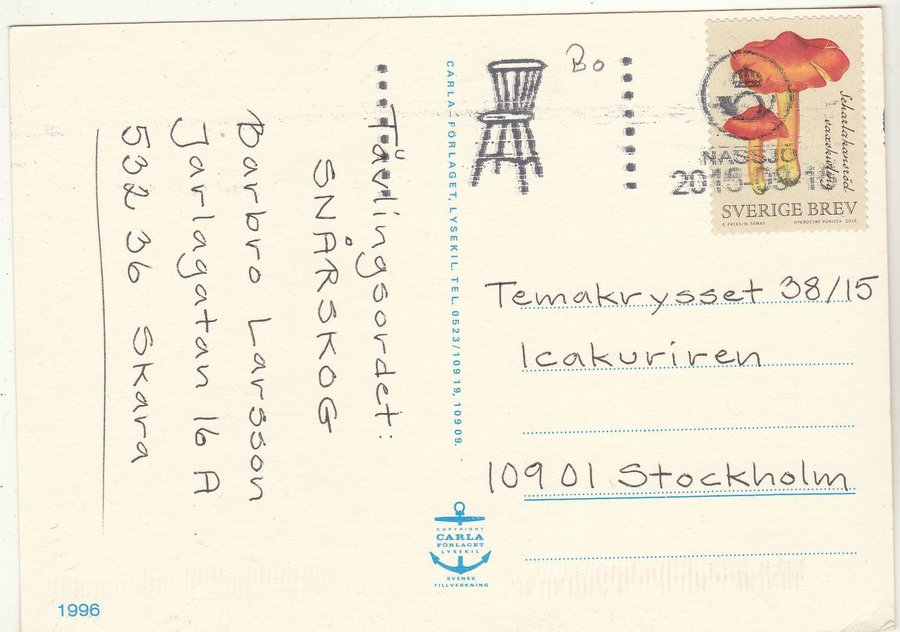 Tävlingsordet:
SNÅRSKOG
Barbro Larsson
Jarlagatan 16 A
532 36 Skara
CARLA-FÖRLAGET, LYSEKIL. TEL. 0523/109 19, 109 09.
Bo
NÄSSJÖ
Scharlakansröd
vaxskivling
SVERIGE BREV
HYGROCYBE PUNICEA 2015
Temakrysset 38/15
Icakuriren
109 01 Stockholm
COPYRIGHT
CARLA
FÖRLAGET
LYSEKIL
SVENSK
TILLVERKNING
1996